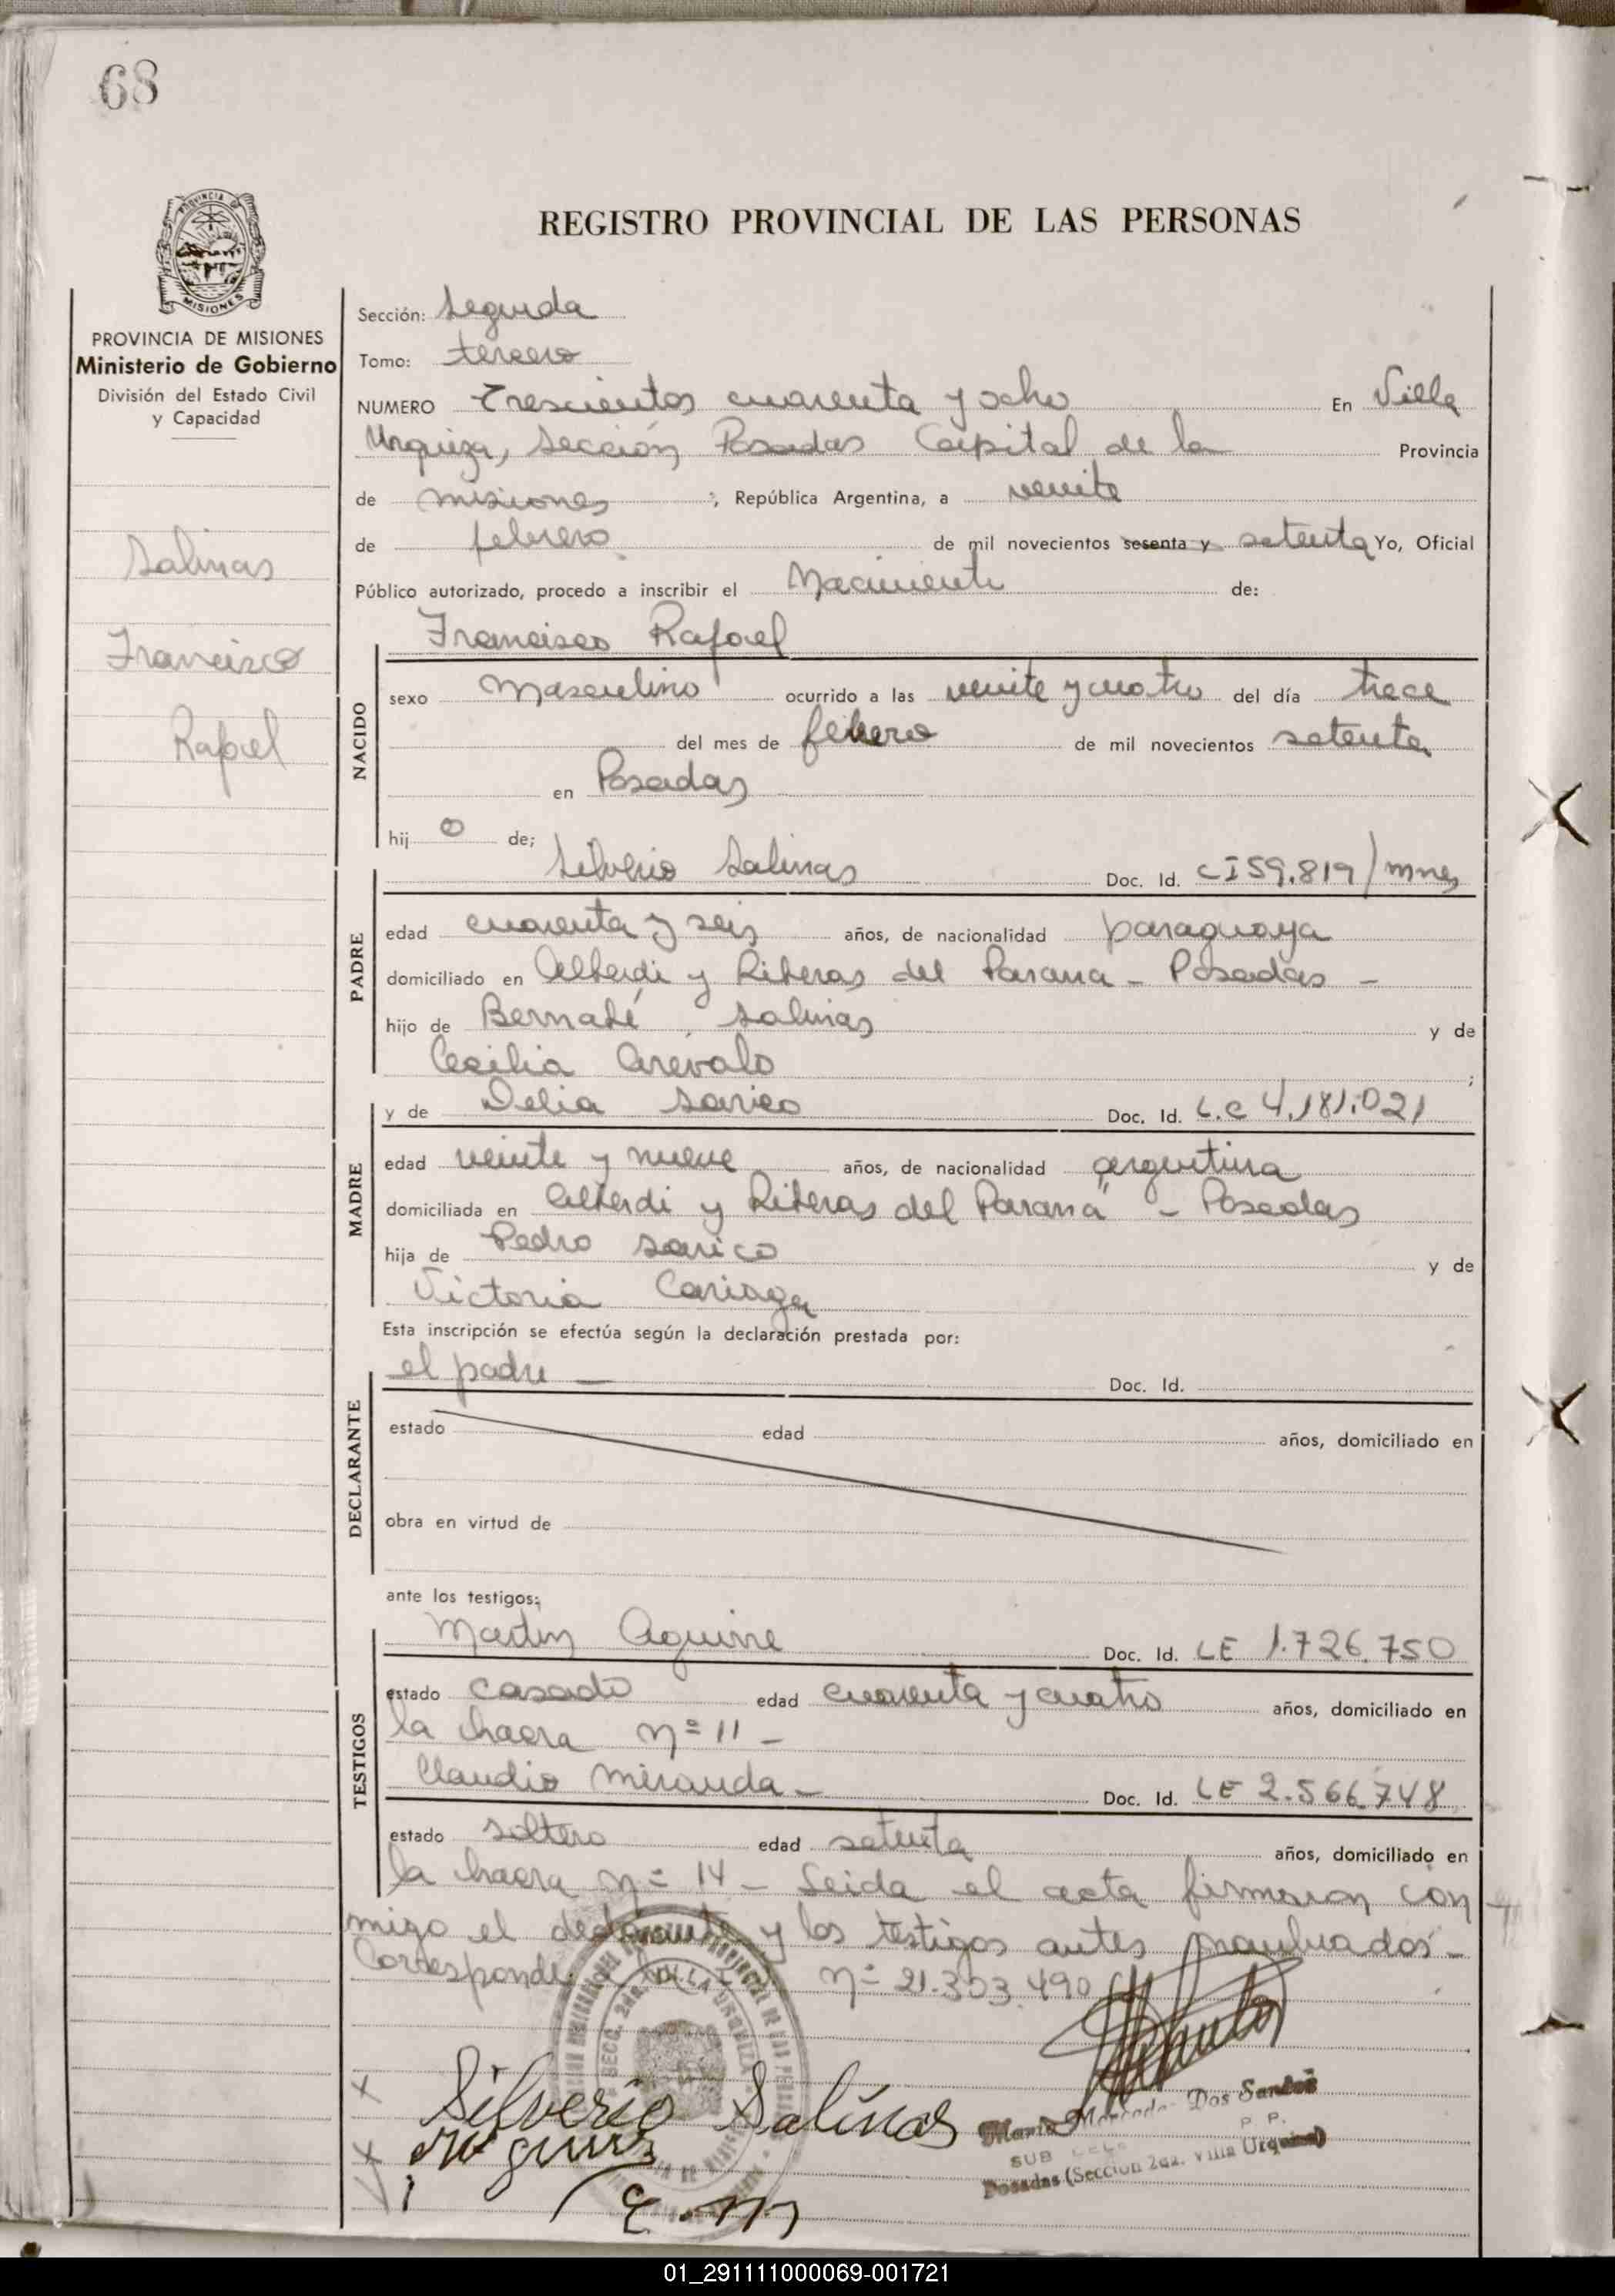 68
PROVINCIA DE MISIONES
Ministerio de Gobierno
División del Estado Civil
y Capacidad
Salinas
Francisco
Rafael
REGISTRO PROVINCIAL DE LAS PERSONAS
Sección: Segunda
Tomo: tercero
NUMERO Trescientos cuarenta y ocho En Villa
Urquiza, sección Posadas Capital de la Provincia
de misiones ; República Argentina, a veinte
de febrero de mil novecientos sesenta y setenta Yo, Oficial
Público autorizado, procedo a inscribir el Nacimiento de:
Francisco Rafael
NACIDO
sexo Masculino ocurrido a las veinte y cuatro del día trece
del mes de febrero de mil novecientos setenta
en Posadas
hijo de;
Silverio Salinas Doc. Id. CI 59.819/mnes
PADRE
edad cuarenta y seis años, de nacionalidad paraguaya
domiciliado en Alberdi y Riberas del Parana - Posadas -
hijo de Bernabé Salinas y de
Cecilia Arévalo ;
y de Delia Sarico Doc. Id. L.C 4.181.021
MADRE
edad veinte y nueve años, de nacionalidad argentina
domiciliada en Alberdi y Riberas del Paraná - Posadas
hija de Pedro Sarico y de
Victoria Cariaga
Esta inscripción se efectúa según la declaración prestada por:
el padre - Doc. Id.
DECLARANTE
estado edad años, domiciliado en
obra en virtud de
ante los testigos;
Martin Aguirre Doc. Id. LE 1.726.750
TESTIGOS
estado casado edad cuarenta y cuatro años, domiciliado en
la chacra nº 11 -
Claudio Miranda - Doc. Id. LE 2.566.748
estado soltero edad setenta años, domiciliado en
la chacra nº 14 - Leida el acta firmaron con
migo el declarante y los testigos antes nombrados -
Corresponde nº 21.303.490
Silverio Salinas
C. M
Dos Santos
SUB
P. P.
Posadas (Sección 2da. Villa Urquiza)
SECC. 2da. VILLA URQUIZA
01_291111000069-001721